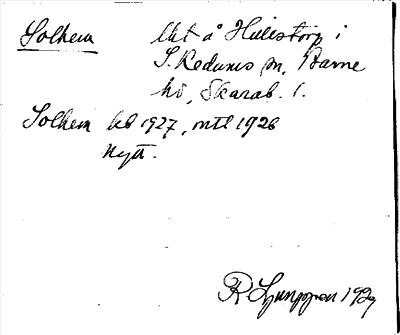 Solhem lht å Hulestorp i
S. Kedums sn, Barne
hd, Skarab. l.
Solhem kb 1927, mtl 1926
Nytt.
R Ljunggren 1929